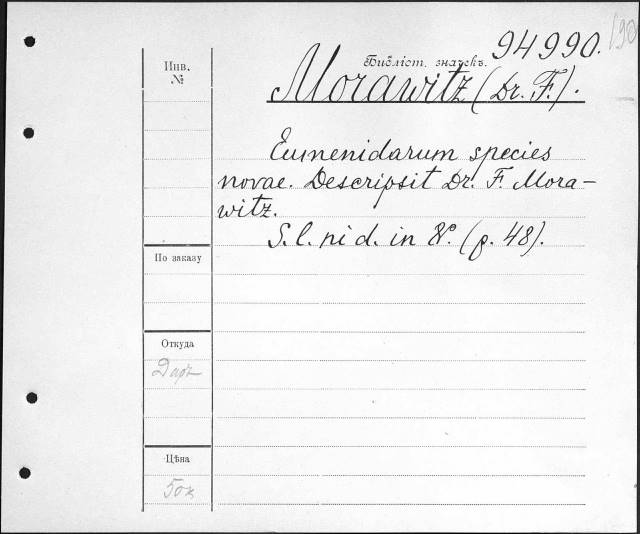 94990.
Библіот. значекъ.
Инв.
№
Morawitz (Dr. F.).
Eumenidarum species
novae. Descripsit Dr. F. Mora-
witz.
S. l. ni d. in 8°. (p. 48).
По заказу
Откуда
Даръ
Цѣна
50к